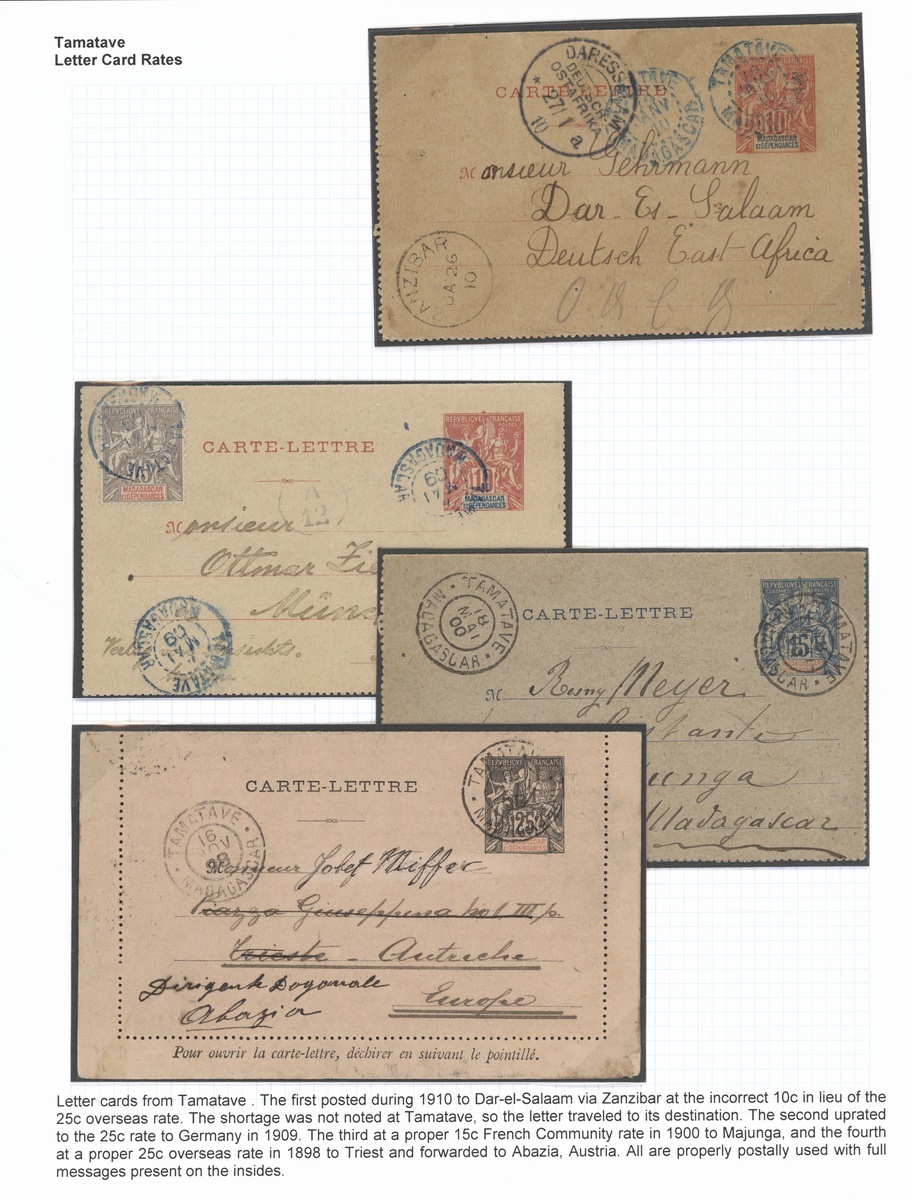 Tamatave
Letter Card Rates
CARTE-LETTRE
DARESSALAM
DEUTSCH
OSTAFRIKA
27/1
10 a
TAMATAVE
MADAGASCAR
TAMATAVE
10
MADAGASCAR
ET DÉPENDANCES
Monsieur Gehrmann
Dar-Es-Salaam
Deutsch East Africa
ZANZIBAR
JA 26
10
REPVBLIQVE FRANÇAISE
COLONIES POSTES
15
MADAGASCAR
ET DÉPENDANCES
CARTE-LETTRE
MADAGASCAR
09
REPVBLIQVE FRANÇAISE
10
MADAGASCAR
ET DÉPENDANCES
12
Monsieur
Ottmar
TAMATAVE
MADAGASCAR
09
TAMATAVE
18
MAI
00
MADAGASCAR
CARTE-LETTRE
REPVBLIQVE FRANÇAISE
15
TAMATAVE
MADAGASCAR
M Remy Meyer
Madagascar
CARTE-LETTRE
TAMATAVE
REPVBLIQVE FRANÇAISE
25
TAMATAVE
16
NOV
98
MADAGASCAR
Monsieur Josef Miffer
Piazza Giuseppina No 1 III p.
Trieste - Autriche
Dirigente Doganale
Europe
Abazia
Pour ouvrir la carte-lettre, déchirer en suivant le pointillé.
Letter cards from Tamatave . The first posted during 1910 to Dar-el-Salaam via Zanzibar at the incorrect 10c in lieu of the
25c overseas rate. The shortage was not noted at Tamatave, so the letter traveled to its destination. The second uprated
to the 25c rate to Germany in 1909. The third at a proper 15c French Community rate in 1900 to Majunga, and the fourth
at a proper 25c overseas rate in 1898 to Triest and forwarded to Abazia, Austria. All are properly postally used with full
messages present on the insides.